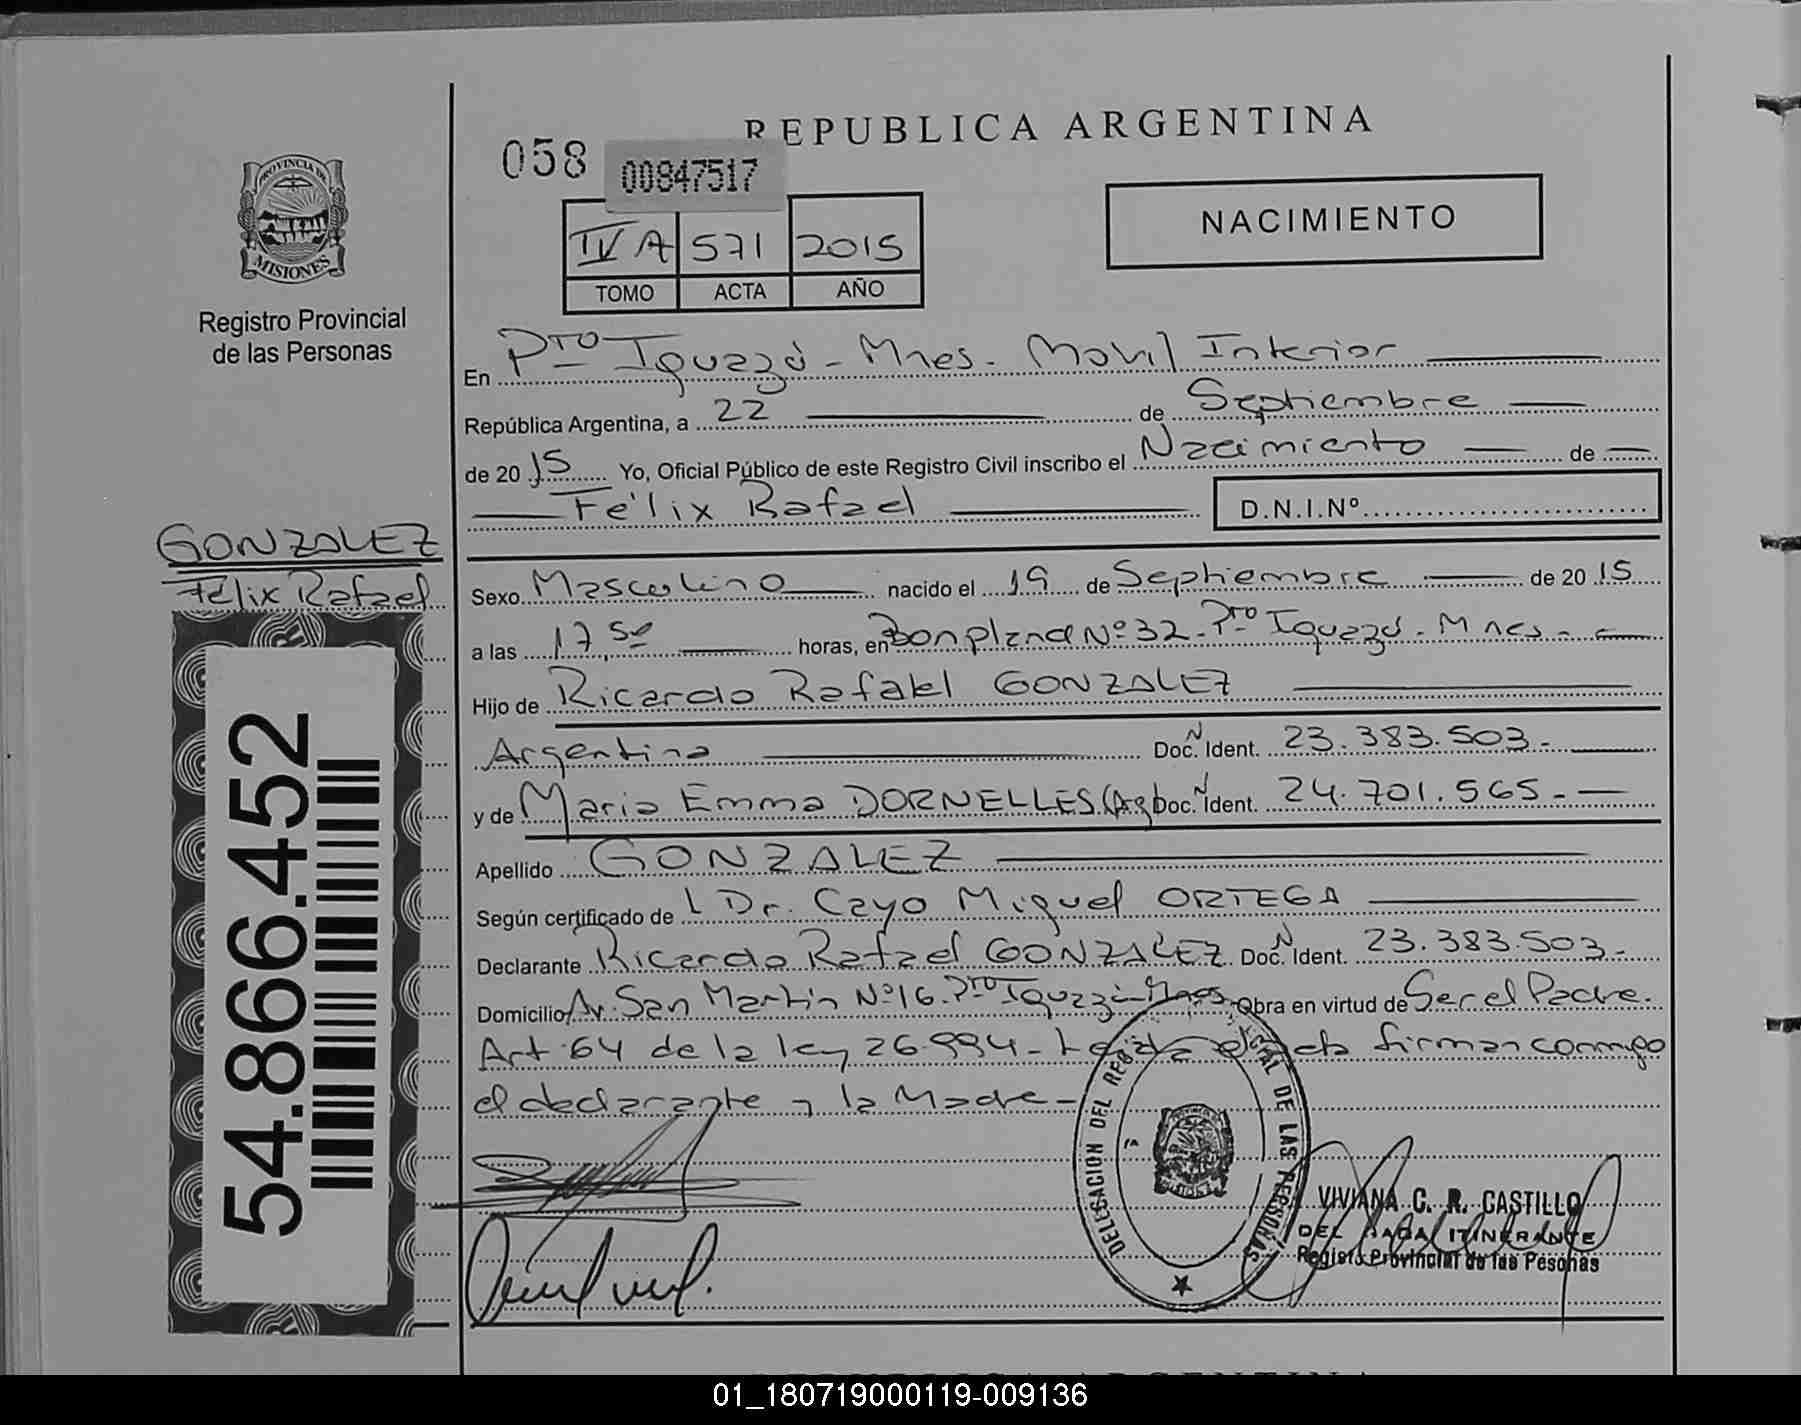 REPUBLICA ARGENTINA
058
00847517
NACIMIENTO
IV A 571 2015
TOMO ACTA AÑO
PROVINCIA DE
MISIONES
Registro Provincial
de las Personas
En Pto Iguazú - Mnes. Movil Interior
República Argentina, a 22 de Septiembre
de 2015 Yo, Oficial Público de este Registro Civil inscribo el Nacimiento de
Félix Rafael D.N.I.Nº
GONZALEZ
Félix Rafael
54.866.452
Sexo Masculino nacido el 19 de Septiembre de 2015
a las 17,50 horas, en Bonpland Nº 32 - Pto Iguazú - Mnes -
Hijo de Ricardo Rafael GONZALEZ
Argentina Doc. N Ident. 23.383.503.-
y de Maria Emma DORNELLES (Arg) Doc. N Ident. 24.701.565.-
Apellido GONZALEZ
Según certificado de l Dr. Cayo Miguel ORTEGA
Declarante Ricardo Rafael GONZALEZ Doc. N Ident. 23.383.503.-
Domicilio Av. San Martín Nº 16. Pto Iguazú - Mnes. Obra en virtud de Ser el Padre.
Art. 64 de la ley 26.994 - Leida el acta firman conmigo
el declarante y la Madre -
DELEGACION DEL REG CIAL DE LAS PERSONAS
VIVIANA C. R. CASTILLO
DEL ITINERANTE
Registro Provincial de las Pesonas
REPUBLICA ARGENTINA
01_180719000119-009136